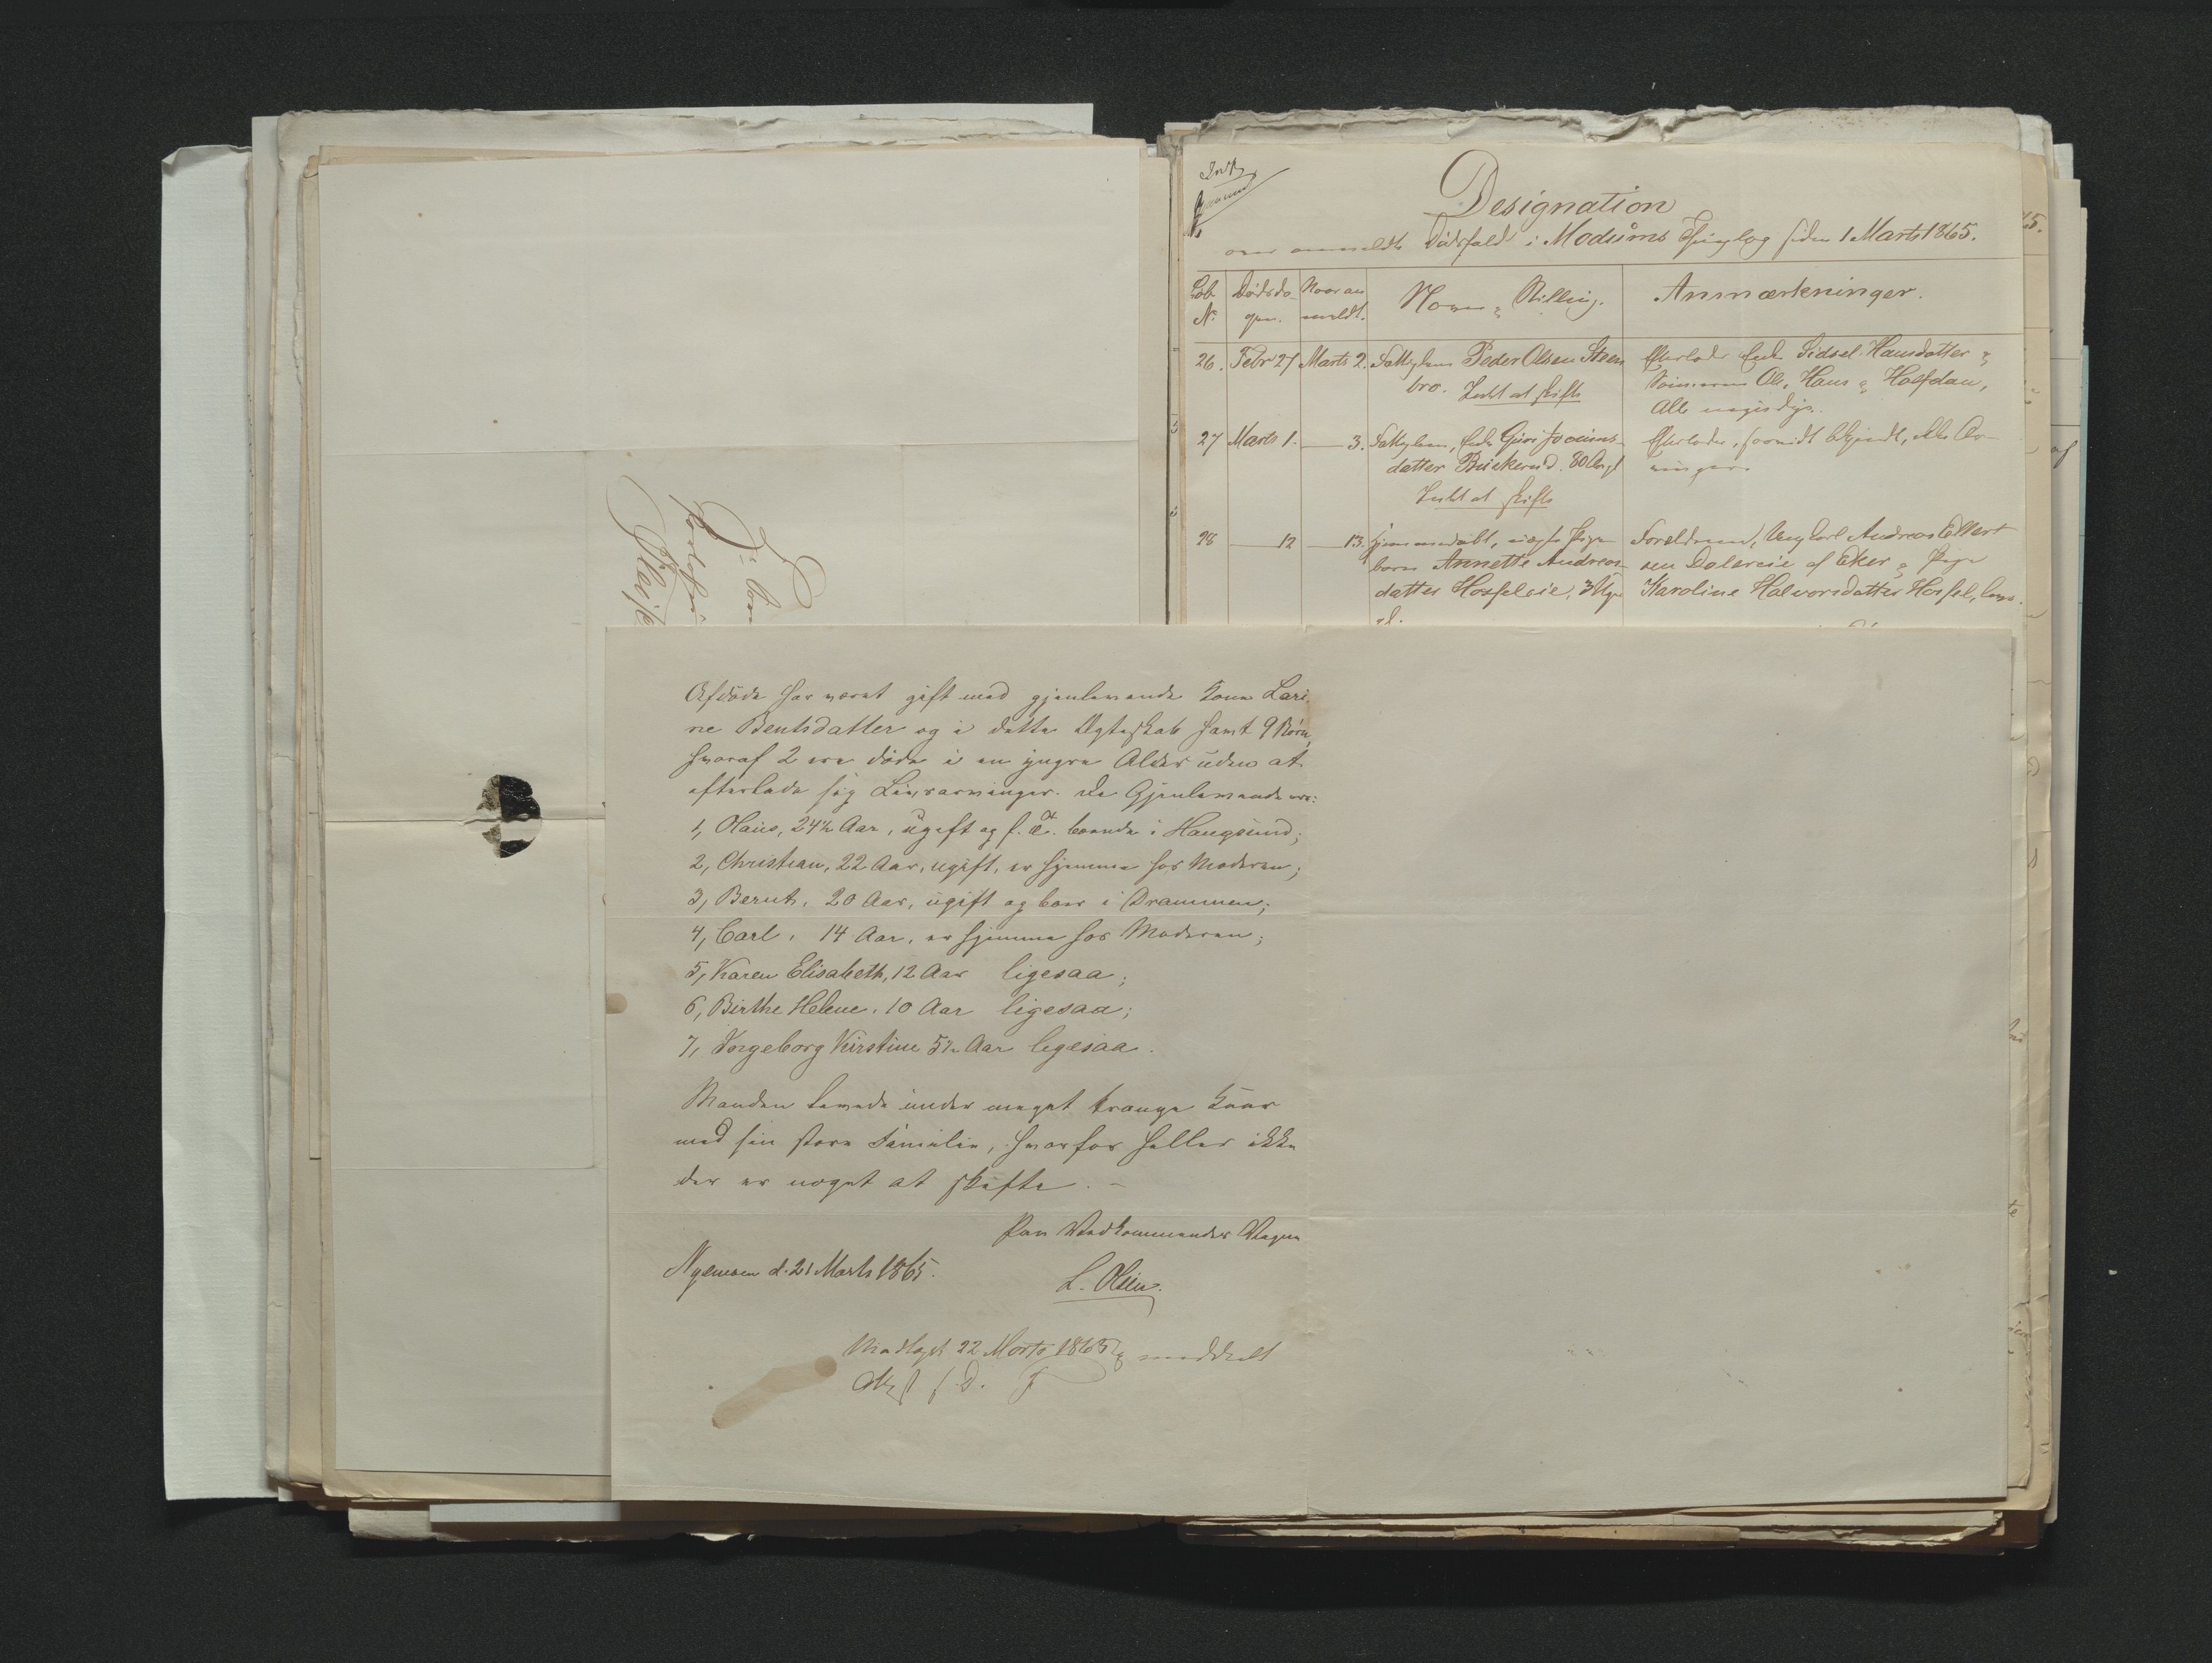 Designation
over anmeldte Dødsfald i Modums Thinglag siden 1 Marts 1865.
Løb. No.
Dødsda-
gen.
Naar an
meldt.
Navn & Stilling.
Anmærkninger.
26. Febr 27 Marts 2. Fattiglem Peder Olsen Steen
bro. Intet at skifte
Efterlader Enke Sidsel Hansdatter &
Sønnerne Ole, Hans & Halfdan,
Alle myndige.
27 Marts 1. — 3. Fattiglem, Enke Guri
datter Buskerud. 80 Aar gl
Intet at skifte
Efterlader, saavidt bekjendt, ikke Ar-
vinger.
28 — 12 — 13. hjemmedøbt, uægte Pige
barn Annette Andreas-
datter Hosfeleie, 3 Uger
gl.
Forældrene, Ungkarl Andreas Ellert
sen Dolereie af Eker & Pige
Karoline Halvorsdatter Hosfel,
Afdøde har været gift med gjenlevende Kone Lari-
ne Bentsdatter og i dette Ægteskab havt 9 Børn,
hvoraf 2 ere døde i en yngre Alder uden at
efterlade sig Livsarvinger. De Gjenlevende ere:
1, Olaus, 24½ Aar, ugift og f. T. boende i Haugsund;
2, Christian, 22 Aar, ugift, er hjemme hos Moderen;
3, Bernt, 20 Aar, ugift og boer i Drammen;
4, Carl, 14 Aar, er hjemme hos Moderen;
5, Karen Elisabeth, 12 Aar ligesaa;
6, Birthe Helene, 10 Aar ligesaa;
7, Ingeborg Kirstine 5½ Aar ligesaa.
Manden levede under meget trange Kaar
med sin store Familie, hvorfor heller ikke
der er noget at skifte. –
Paa Vedkommendes Vegne
Nyemoen d. 21 Marts 1865.
L. Olsen.
Modtaget 22 Marts 1865 & meddelt